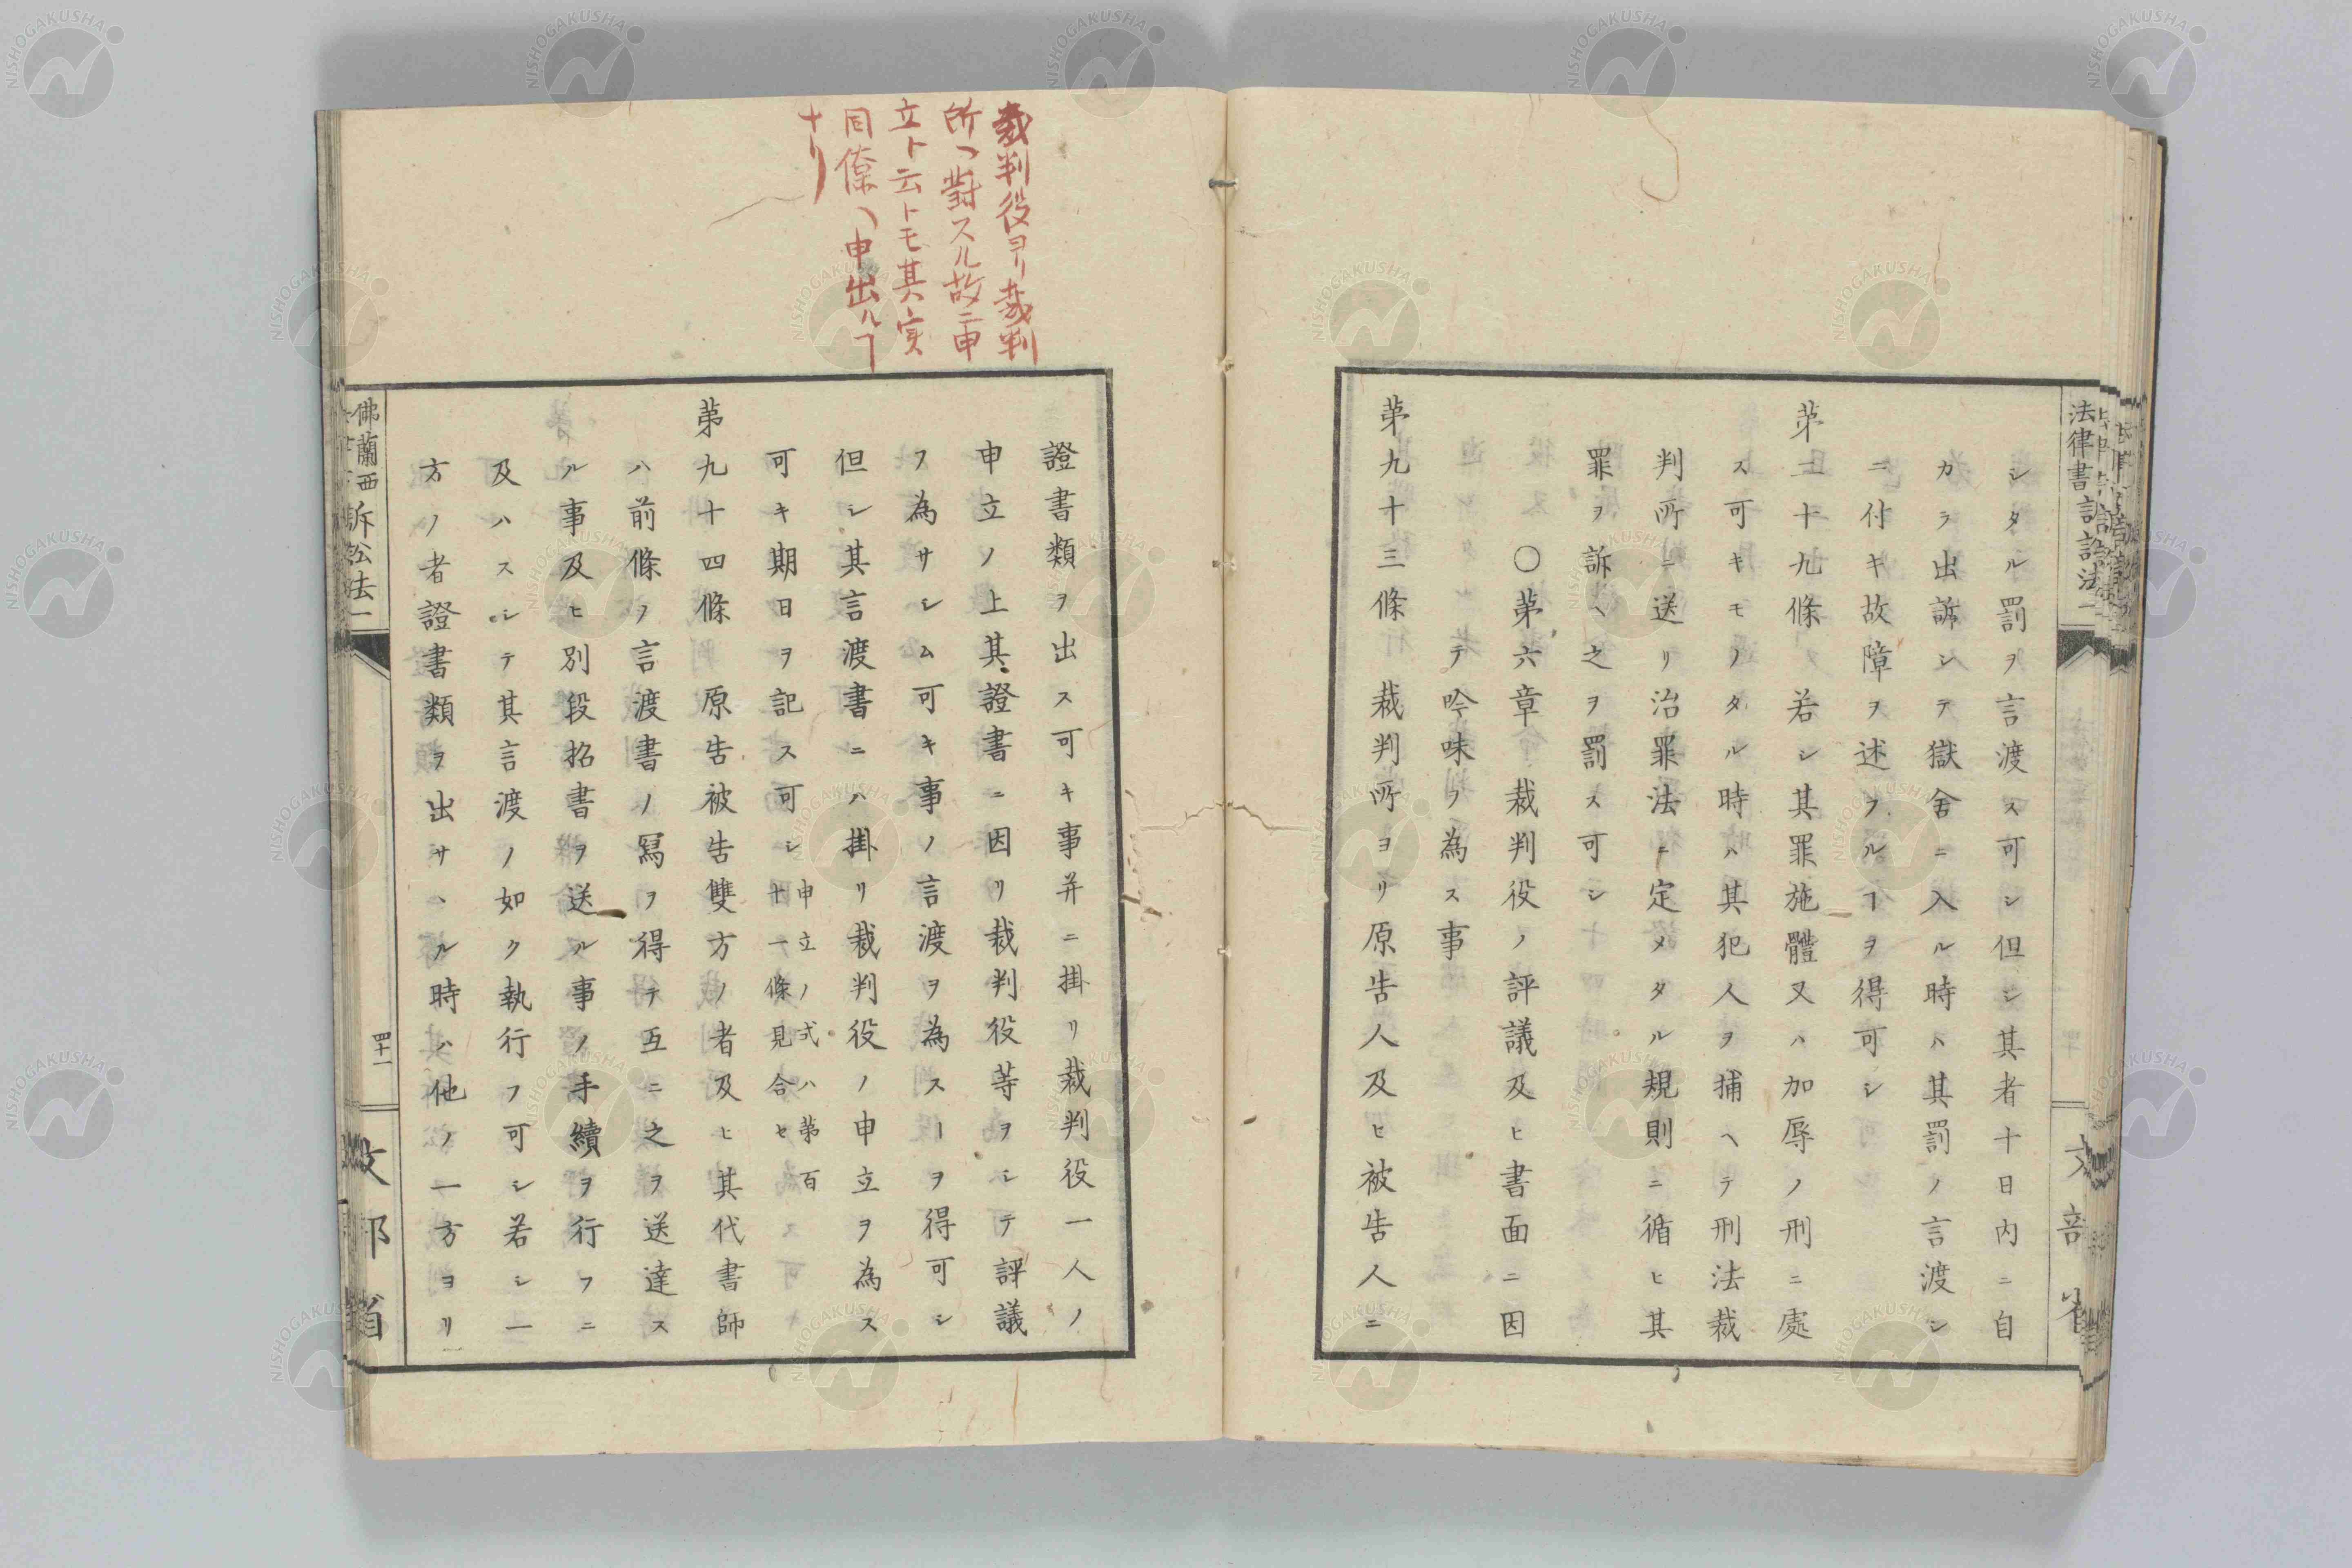 シタル罰ヲ言渡ス可シ但シ其者十日内ニ自
カラ出訴シテ獄舍ニ入ル時ハ其罰ノ言渡シ
ニ付キ故障ヲ述フルヿヲ得可シ
苐二十九條 若シ其罪施體又ハ加辱ノ刑ニ處
ス可キモノタル時ハ其犯人ヲ捕ヘテ刑法裁
判所ニ送リ治罪法ニ定メタル規則ニ循ヒ其
罪ヲ訴ヘ之ヲ罰ス可シ
〇苐六章 裁判役ノ評議及ヒ書面ニ因
テ吟味ノ為ス事
苐九十三條 裁判所ヨリ原告人及ヒ被告人ニ
裁判役ヨリ裁判
所ヘ對スル故ニ申
立ト云トモ其実
同僚ヘ申出ルヿ
ナリ
證書類ヲ出ス可キ事并ニ掛リ裁判役一人ノ
申立ノ上其證書ニ因リ裁判役等ヲシテ評議
フ為サシム可キ事ノ言渡ヲ為スーヲ得可シ
但シ其言渡書ニハ掛リ裁判役ノ申立ヲ為ス
可キ期日ヲ記ス可シ申立ノ式ハ第百
十一條見合セ
苐九十四條 原告被告雙方ノ者及ヒ其代書師
ハ前條ノ言渡書ノ冩ヲ得テ互ニ之ヲ送達ス
ル事及ヒ別段招書ヲ送ル事ノ手續ヲ行フニ
及ハスシテ其言渡ノ如ク執行フ可シ若シ一
方ノ者證書類ヲ出サヽル時ハ他ノ一方ヨリ
佛蘭西訴訟法一
四十一
文部省